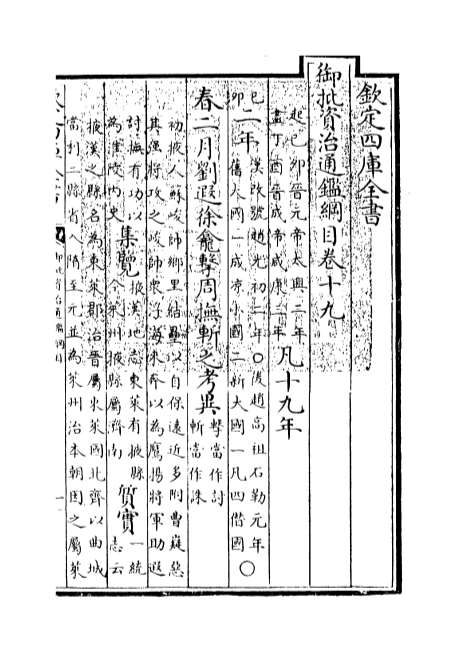 欽定四庫全書
御批資治通鑑綱目卷十九
起己卯晉元帝太興二年
盡丁酉晉成帝咸康三年
凡十九年
己
卯
二年
漢改號趙光初二年○後趙高祖石勒元年○
舊大國一成涼小國二新大國一凡四僭國
春二月劉遐徐龕擊周撫斬之
考異
擊當作討
斬當作誅
初掖人蘇峻帥鄉里結壘以自保遠近多附曹嶷惡
其彊將攻之峻帥衆浮海來奔以為鷹揚將軍助遐
討撫有功以
為淮陵内史
集覽
掖漢地志東萊有掖縣
今萊州掖縣屬濟南
質實
一統
志云
掖漢之縣名為東萊郡治晉屬東萊國北齊以曲城
當利二縣省入隋至元並為萊州治本朝因之屬萊